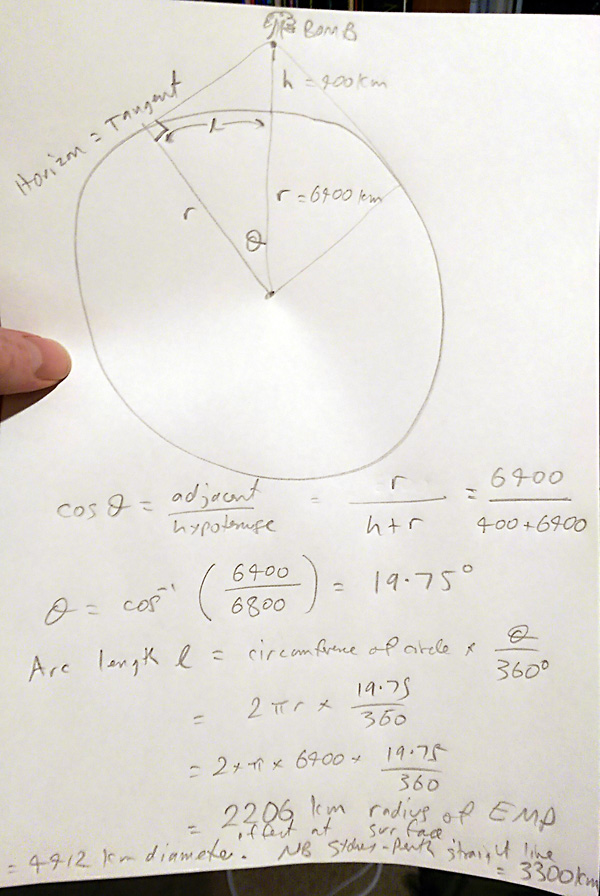 BOMB
h = 400km
Horizon = Tangent
l
r
r = 6400 km
θ
cos θ = adjacent/hypotenuse = r/h+r = 6400/400+6400
θ = cos⁻¹ (6400/6800) = 19.75°
Arc length l = circumference of circle × θ/360°
= 2πr × 19.75/360
= 2 × π × 6400 × 19.75/360
= 2206 km radius of EMP
effect at surface
= 4412 km diameter. NB Sydney-Perth straight line
= 3300km